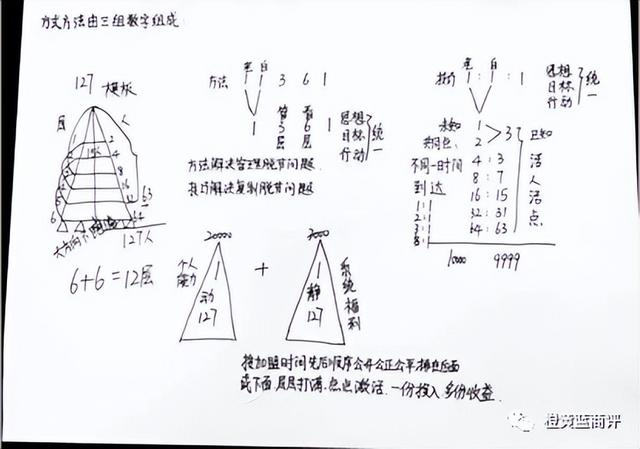 方式方法由三组数字组成:
127 模板
层 人
1
2
4
8
16
32
63
6 64
127人
6+6=12层
老自
方法 1 1 3 6 1
管看
1 3 6 1
层层
思想
目标
行动
统一
方法解决管理脱节问题
技巧解决复制脱节问题
老自
技巧 1:1:1
思想
目标
行动
统一
未知 1
2 > 3 已知
不同一时间
到达
4:3
8:7
16:15
32:31
64:63
活人活点
1:1
2:
3:
8:
10000 9999
20000
个人能力
1
动
127
+
7000
1
静
127
系统福利
按加盟时间先后顺序公开公正公平排在后面
或下面,层层打满.点点激活.一份投入多份收益.
橙黄蓝商评